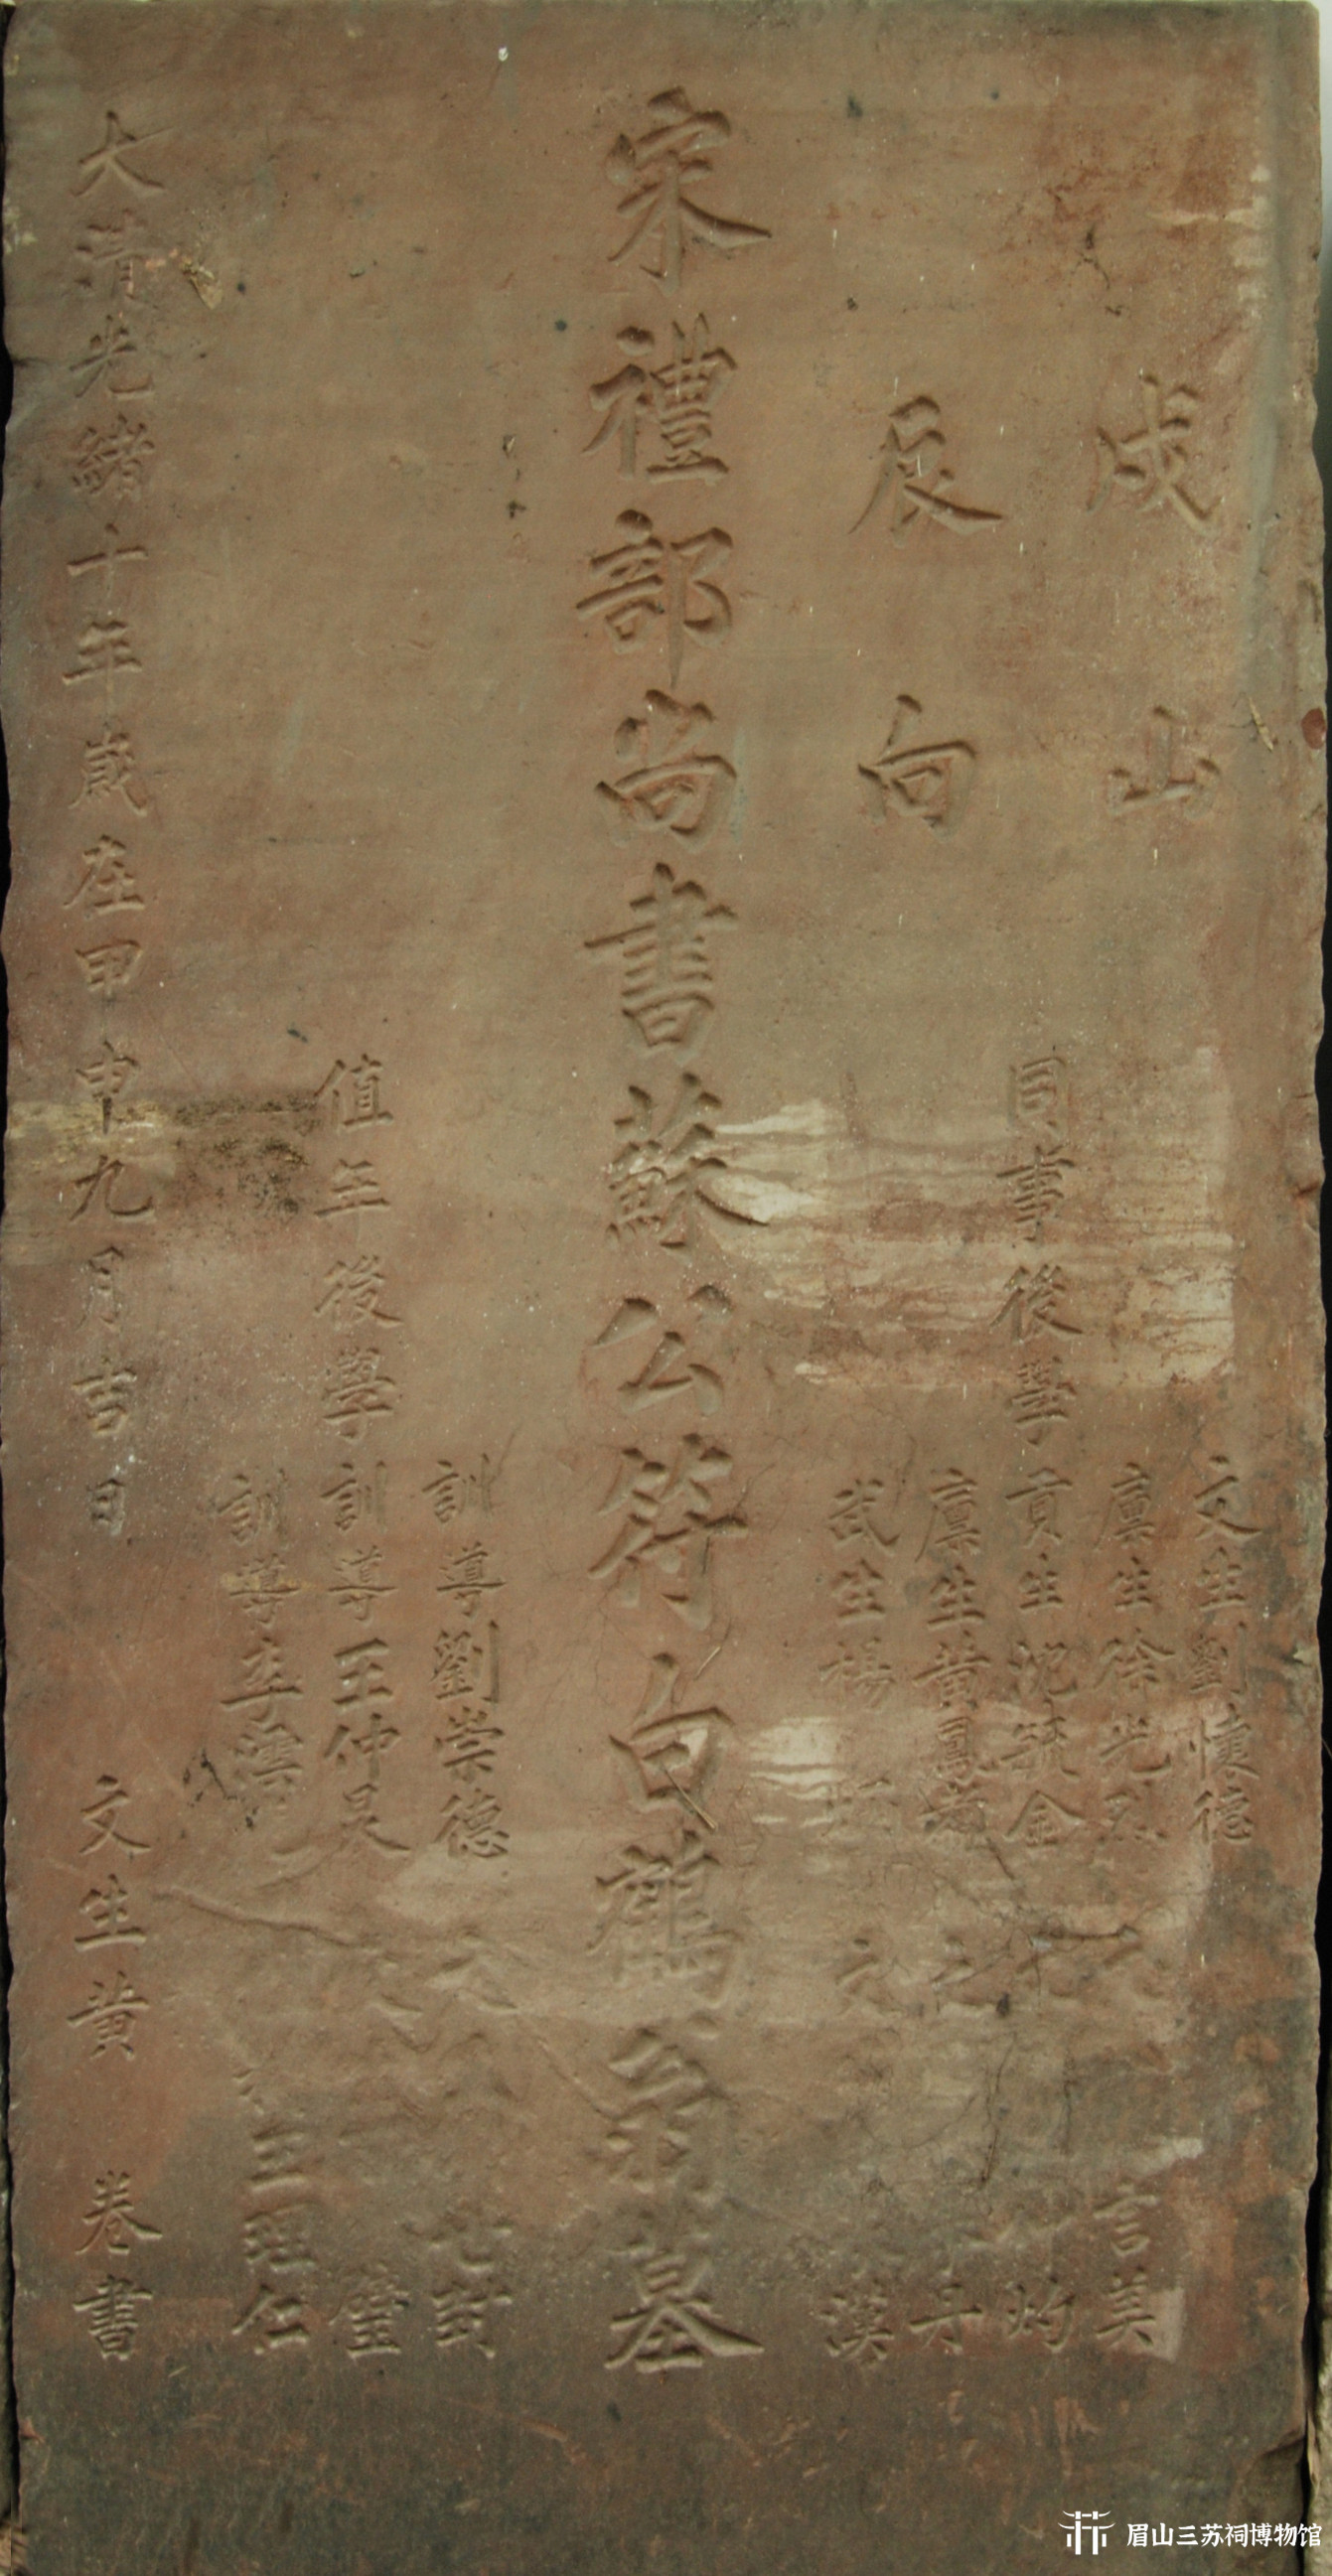 戌山
辰向
同事後學
文生劉懷德
廪生徐光烈
貢生沈毓金
廪生黃鳳
武生楊
言美
灼
漢
宋禮部尚書蘇公符白鶴翁墓
值年後學
訓導劉崇德
訓導王仲昊
訓導李濱
璧
王理仁
大清光緒十年歲在甲申九月吉日
文生黃卷書
眉山三苏祠博物馆